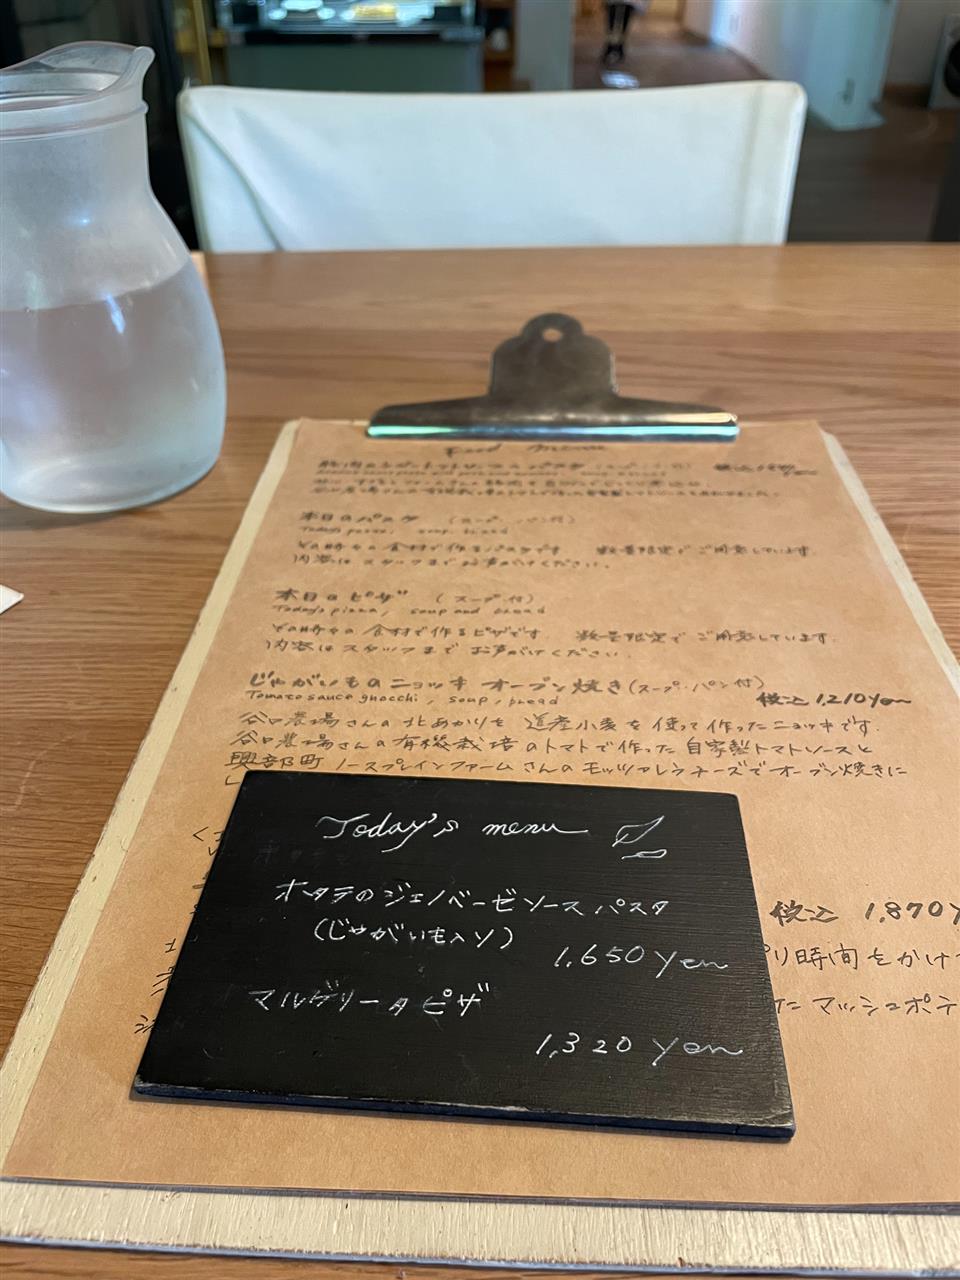 Food menu
本日のパスタ (スープ・パン付)
Today's pasta, soup, bread
その時々の食材で作るパスタです. 数量限定でご用意しています.
内容はスタッフまでお声がけください.
本日のピザ (スープ付)
Today's pizza, soup and bread
その時々の食材で作るピザです. 数量限定でご用意しています.
内容はスタッフまでお声がけください.
じゃがいものニョッキ オーブン焼き(スープ・パン付)
Tomato sauce gnocchi, soup, bread 税込 1,210yen
谷口農場さんの北あかりを 道産小麦を使って作ったニョッキです.
谷口農場さんの有機栽培のトマトで作った自家製トマトソースと
興部町 ノースプレインファームさんのモッツァレラチーズでオーブン焼きに
Today's menu
ホタテのジェノベーゼソースパスタ
(じゃがいも入り)
1,650 yen
マルゲリータピザ
1,320 yen
税込 1,870y
り時間をかけ
たマッシュポテ